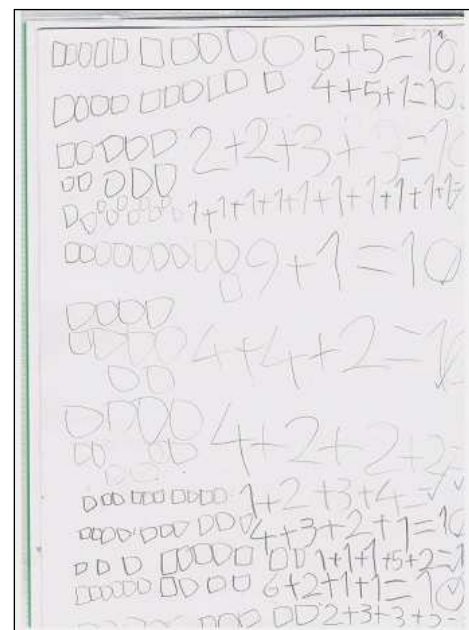 5+5=10
4+5+1=10
2+2+3+3=10
1+1+1+1+1+1+1+1+1+1=
9+1=10
4+4+2=10
4+2+2+2=
1+2+3+4=
4+3+2+1=10
1+1+1+5+2=1
6+2+1+1=10
2+3+3+2=